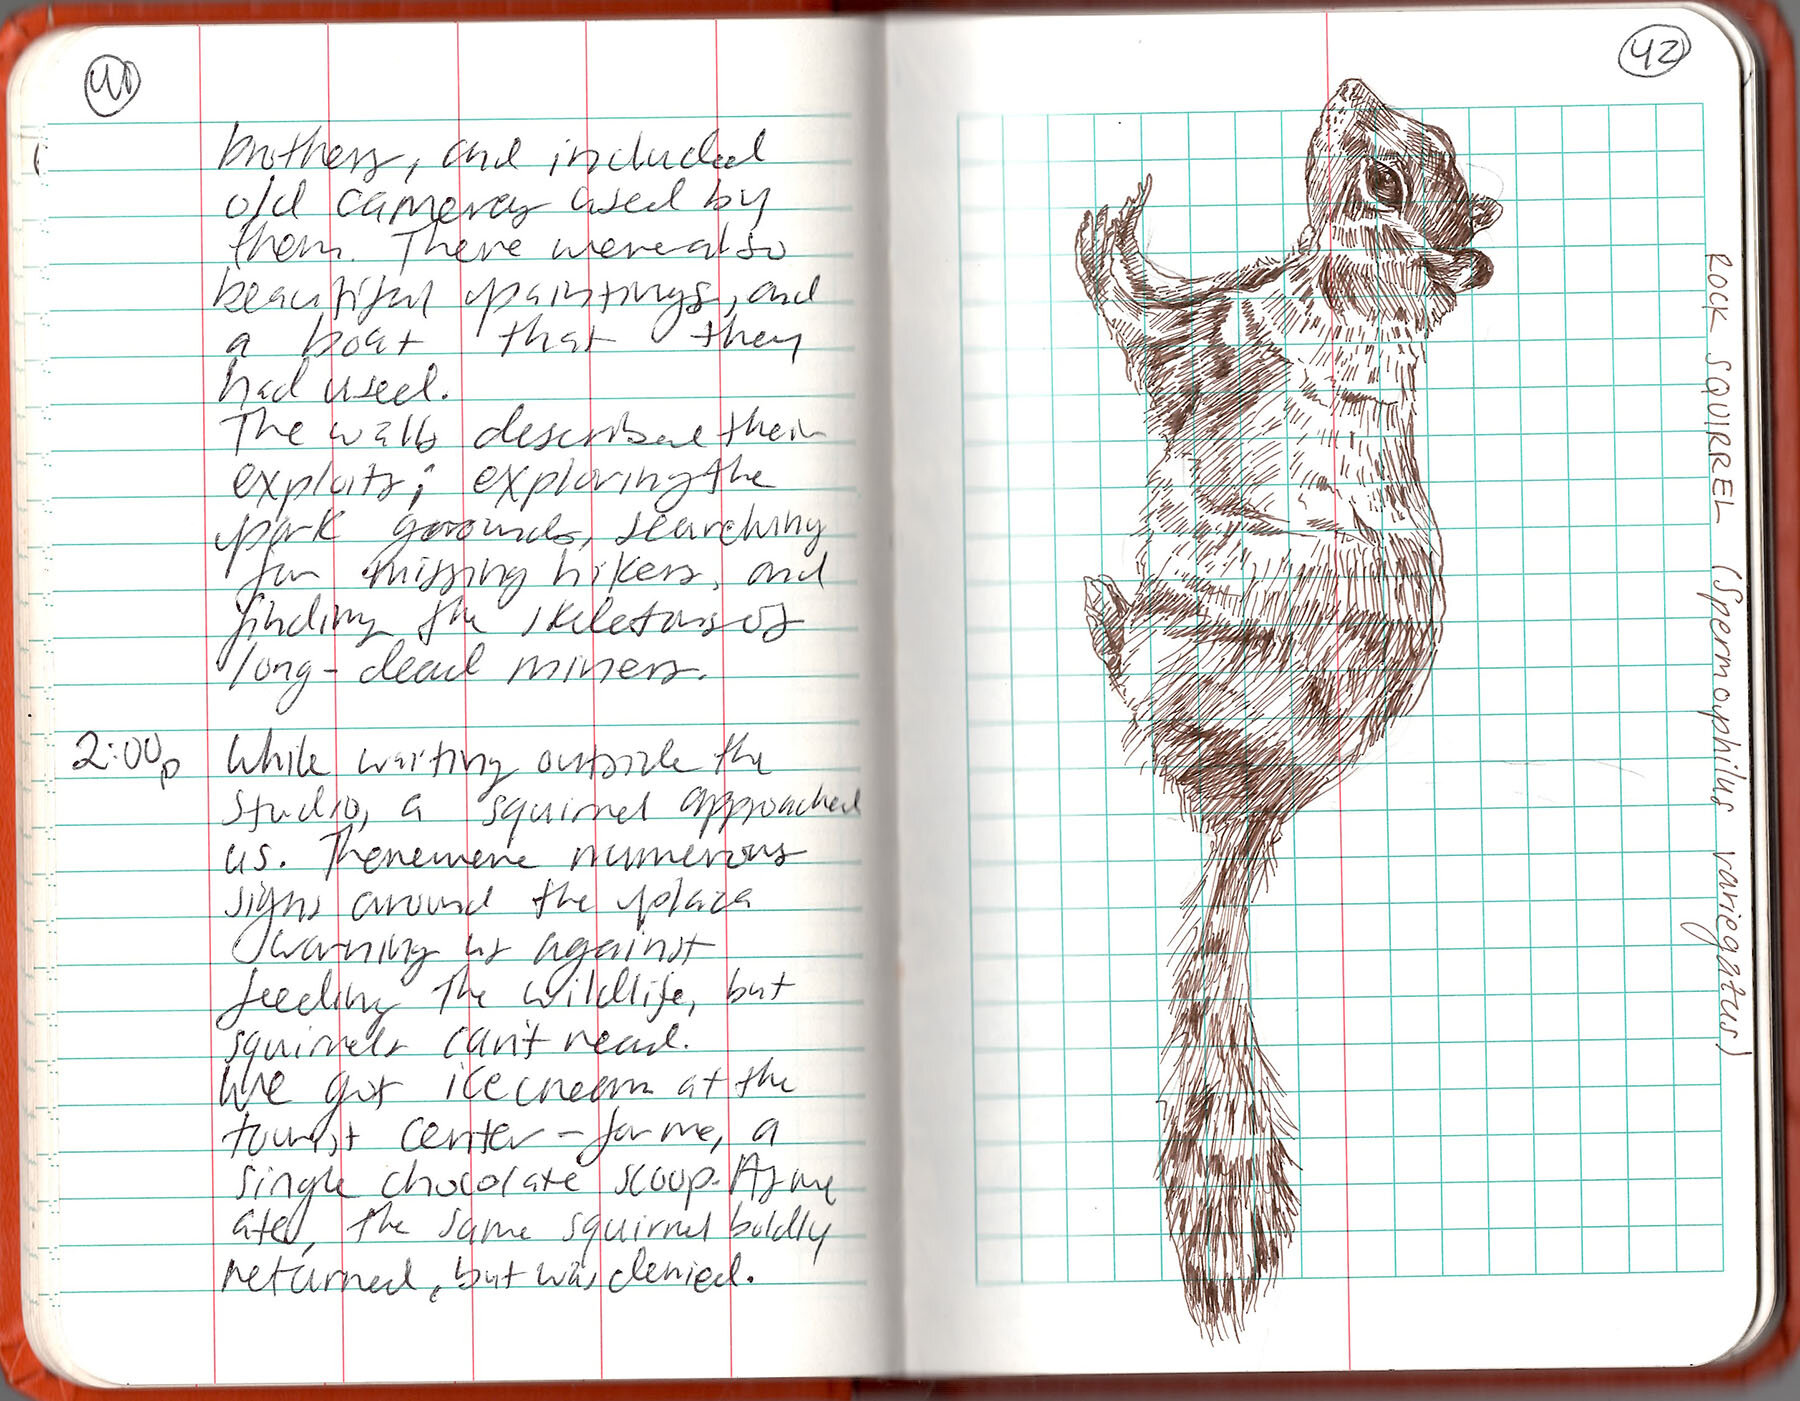 41
brothers, and included
old cameras used by
them. There were also
beautiful paintings, and
a boat that they
had used.
The walls described their
exploits; exploring the
park grounds, searching
for missing hikers, and
finding the skeletons of
long-dead miners.
2:00p While waiting outside the
studio, a squirrel approached
us. There were numerous
signs around the plaza
warning us against
feeding the wildlife, but
squirrels can't read.
We got ice cream at the
tourist center - for me, a
single chocolate scoop. As we
ate, the same squirrel boldly
returned, but was denied.
42
ROCK SQUIRREL (Spermophilus variegatus)